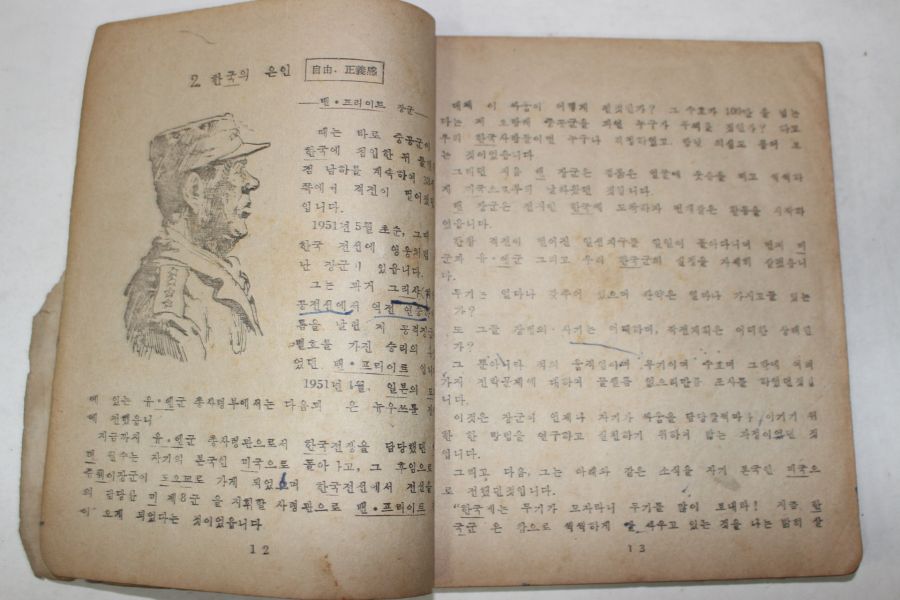 2. 한국의 은인
自由、正義感
—밴·프리이트 장군—
때는 바로 중공군이
한국에 침입한 뒤
남하를 계속하여
쪽에서 격전이 벌어졌
입니다.
1951년 5월 초순,
한국 전선에 영웅처럼
난 장군이 있읍니다.
그는 과거 그리샤
공전선에서 역전
이름을 날린 저 공격
별호를 가진 승리의
였던 밴·프리이트
1951년 4월, 일본의
에 있는 유·엔군 총사령부에서는 다음과 은 뉴우쓰를
에 전했읍니
지금까지 유·엔군 총사령관으로서 한국전쟁을 담당했던
원수는 자기의 본국인 미국으로 돌아가고, 그 후임으로
장군이 도오꾜로 가게 되었으며 한국전선에서 전선을
의 담당한 미 제8군 을 지휘할 사령관으로 밴·프리이트
이 오게 되었다는 것이었읍니다
12
대체 이 싸움이 어떻게 될것인가? 그 수효가 100만 을 넘는
다는 저 오랑캐 중공군을 저 누구가 것인가? 다고
우리 한국사람들이면 누구나 걱정하였고 의심도 들어 보
는 것이었읍니다
그러던 지음 밴 장군은 얼굴에 웃음을 띄고 씩씩하
게 미국으로부터 날라왔던 것입니다.
밴 장군은 한국에 도착하자 번개같은 활동을 시작하
였읍니다.
한참 격전이 벌어진 일선지구를 일일이 돌아다니며 먼저 미
군과 유·엔군 그리고 우리 한국군의 실정을 자세히 살폈읍니
다.
무기는 얼마나 갖추어 있으며 탄약은 얼마나 가지고들 있는
가?
또 그들 장병의 사기는 어떠하며, 작전계획은 어떠한 상태인
가?
그 뿐아니라 적의 움직임이며 무기이며 수효며 그밖에 여러
가지 전략문제에 대하여 물샐틈 없으리만큼 조사를 하였던것입
니다.
이것은 장군이 언제나 자기가 싸움을 담당할적마다 이기기 위
한 한 방법을 연구하고 실천하기 위하여 밟는 과정이었던 것
입니다.
그리고 다음, 그는 아래와 같은 소식을 자기 본국인 미국으
로 전했던것입니다.
"한국에는 무기가 모자라니 무기를 많이 보내라! 지금 한
국군 은 참으로 씩씩하게 잘 싸우고 있는 것을 나는 밝히 살
13